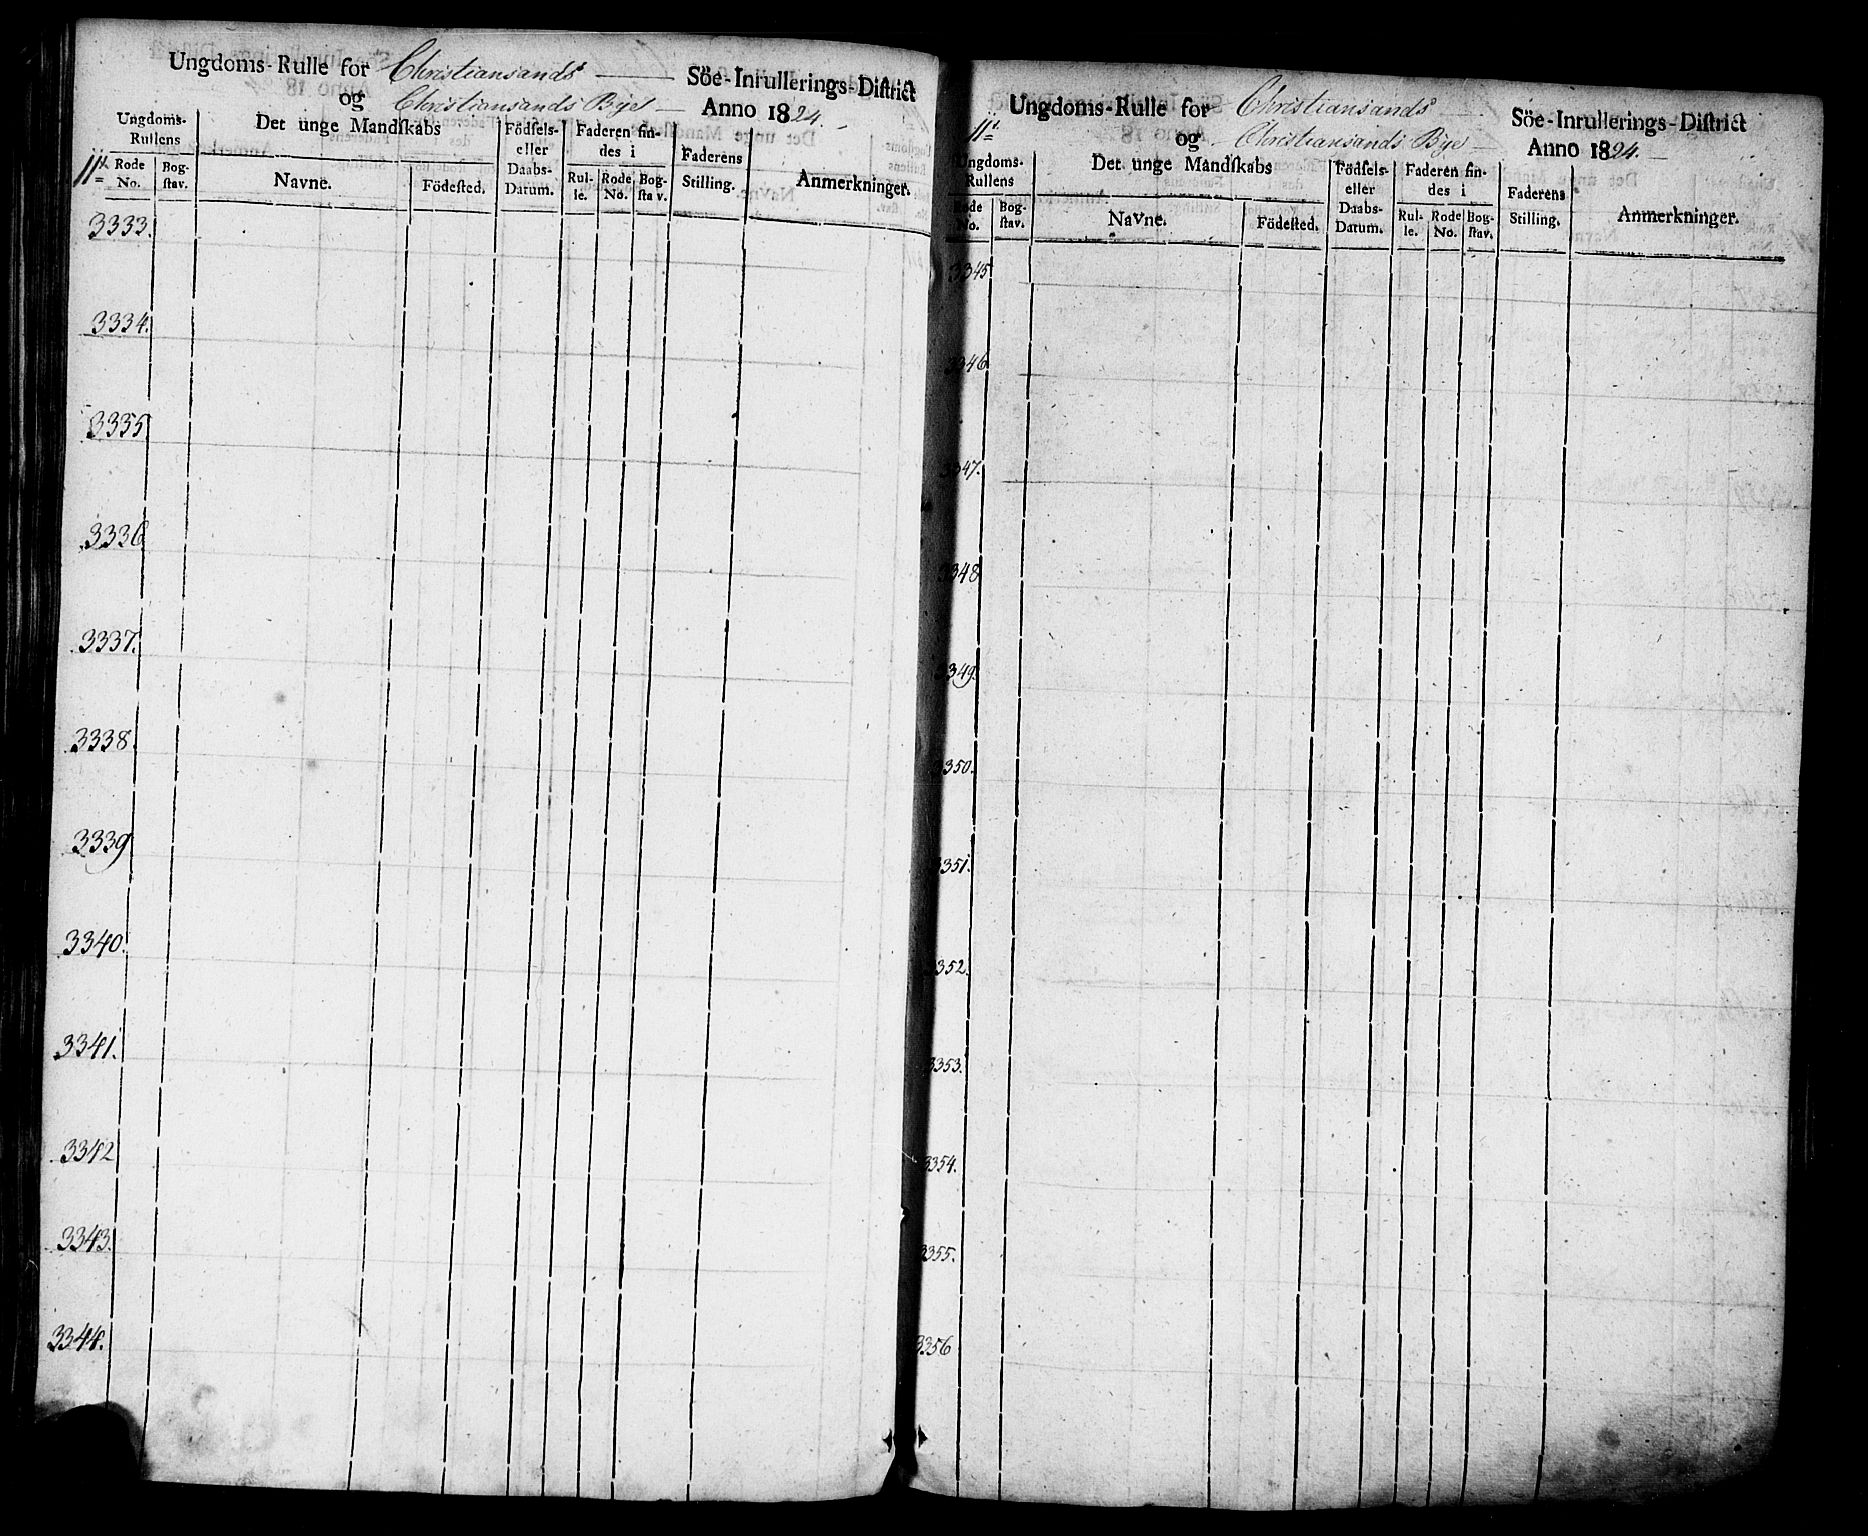 Ungdoms-Rulle for Christiansands Söe-Inrullerings-District
og Christiansands Bÿes Anno 1824.
11te
Ungdoms-Rullens
Det unge Mandskabs
Födsels- eller Daabs-Datum.
Faderen findes i
Faderens Stilling.
Anmerkninger.
Rode No.
Bogstav.
Navne.
Födested.
Rulle.
Rode No.
Bogstav.
3333.
3334.
3335
3336
3337.
3338.
3339
3340.
3341.
3342
3343.
3344.
Ungdoms-Rulle for Christiansands Söe-Inrullerings-District
11te
og Christiansands Bÿe Anno 1824.
Ungdoms-Rullens
Det unge Mandskabs
Födsels- eller Daabs-Datum.
Faderen findes i
Faderens Stilling.
Anmerkninger.
Rode No.
Bogstav.
Navne.
Födested.
Rulle.
Rode No.
Bogstav.
3345
3346
3347.
3348
3349.
3350.
3351.
3352.
3353.
3354.
3355.
3356